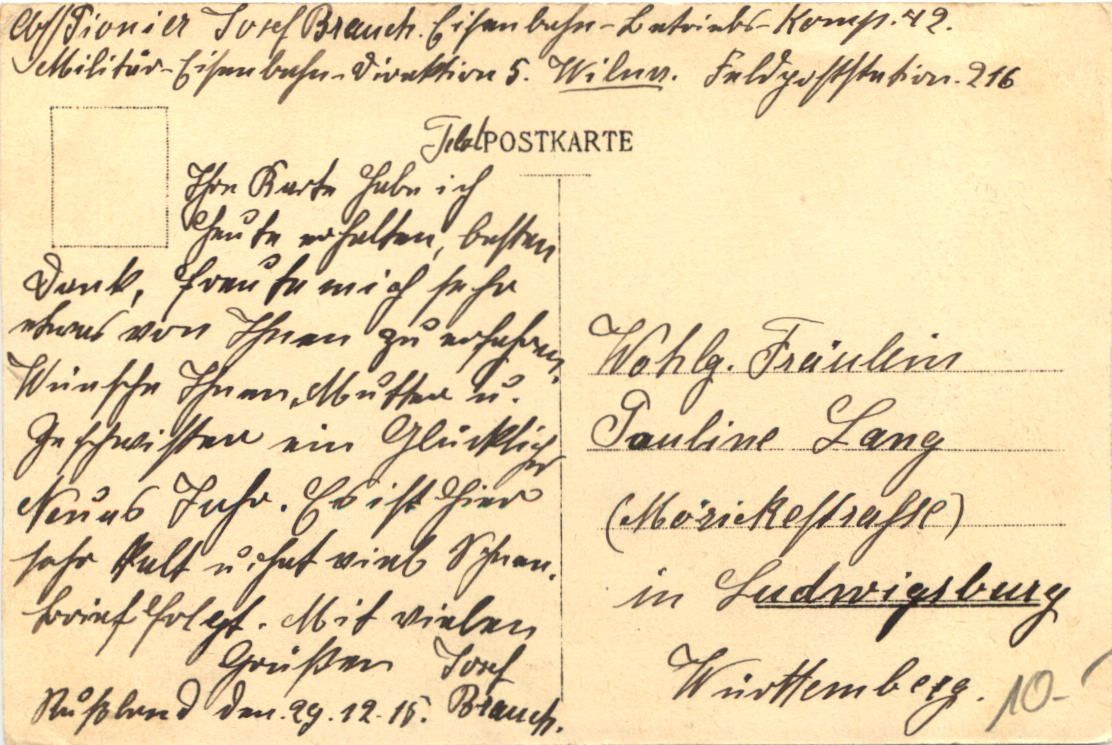 Abs/Pionier Josef Brauch. Eisenbahn-Betriebs-Komp. 42.
Militär-Eisenbahn-Direktion 5. Wilna. Feldpoststation. 216
FeldPOSTKARTE
Ihre Karte habe ich
heute erhalten, besten
Dank, freute mich sehr
etwas von Ihnen zu erfahren.
Wünsche Ihnen, Mutter u.
Geschwister ein Glückliches
Neues Jahr. Es ist hier
sehr kalt u. hat viel Schnee.
Brief folgt. Mit vielen
Grüßen Josef
Rußland den. 29.12.15. Brauch.
Wohlg. Fräulein
Pauline Lang
(Mörickestrasse)
in Ludwigsburg
Württemberg.
10-